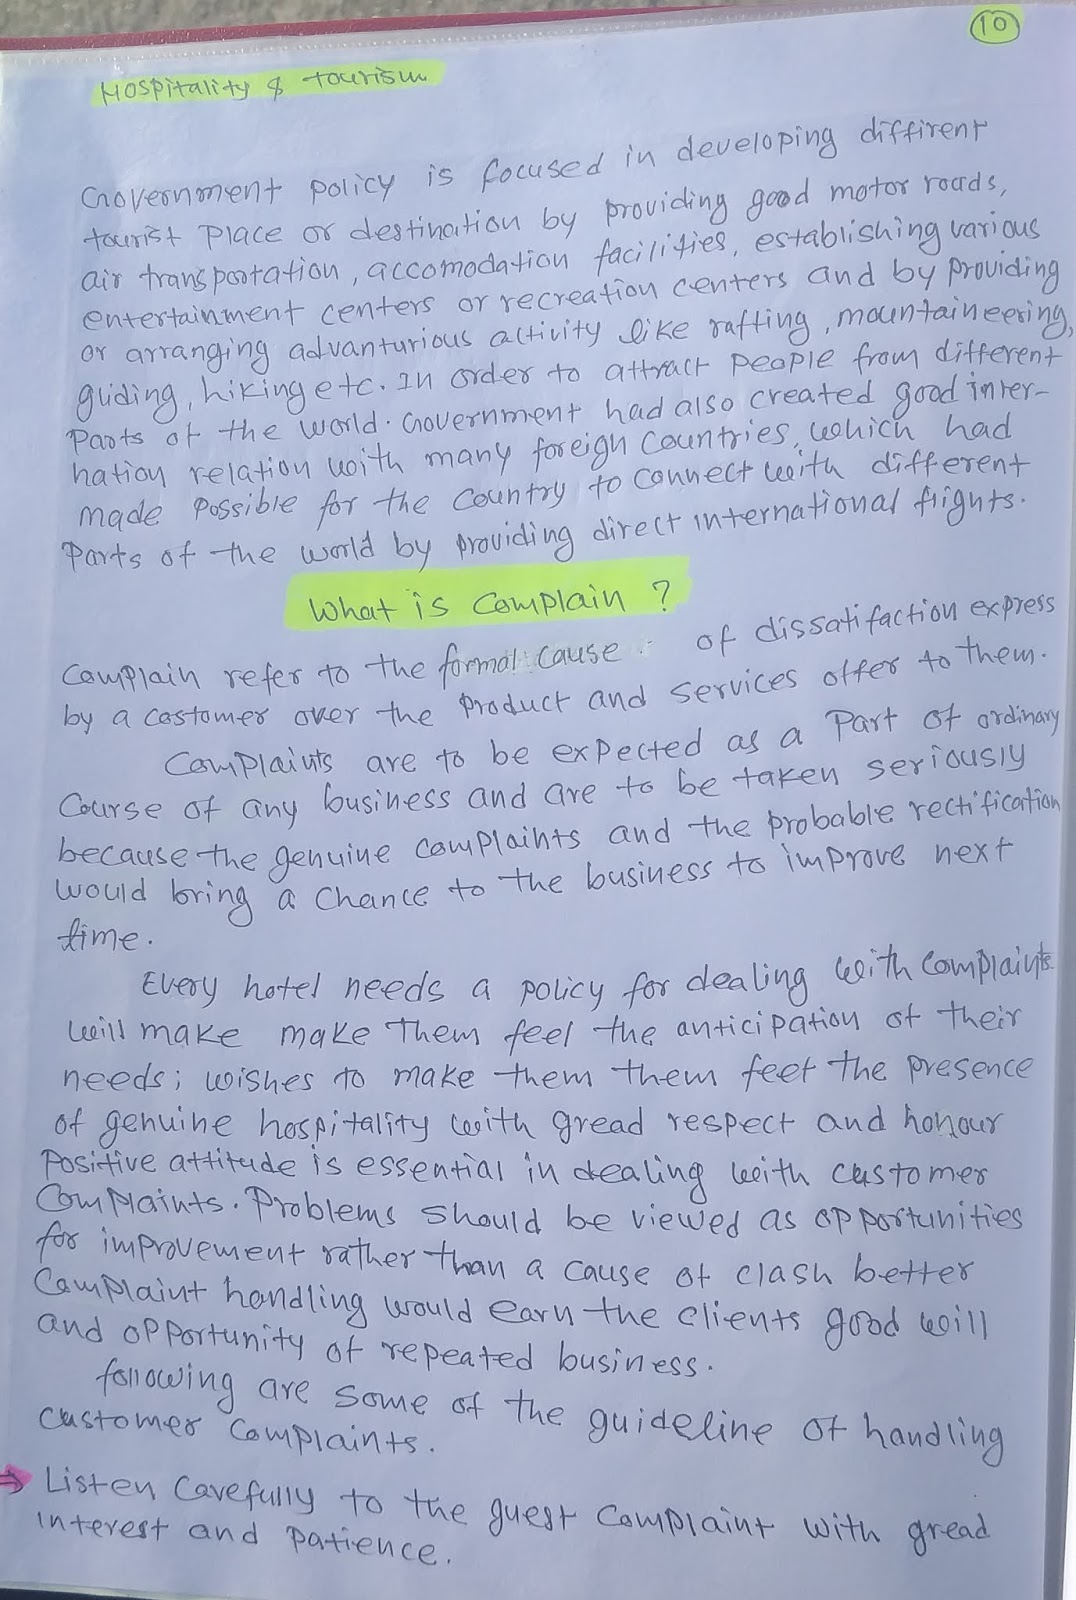 10
Hospitality & tourism
Government policy is focused in developing diffirent
tourist place or destination by providing good motor roads,
air transportation, accomodation facilities, establishing various
entertainment centers or recreation centers and by providing
or arranging advanturious activity like rafting, mountaineering,
guiding, hiking etc. In order to attract people from different
Parts of the world. Government had also created good inter-
nation relation with many foreign countries, which had
made possible for the country to connect with different
Parts of the world by providing direct international flights.
What is Complain ?
Complain refer to the formal cause of dissatifaction express
by a costomer over the product and services offer to them.
Complaints are to be expected as a part of ordinary
Course of any business and are to be taken seriously
because the genuine complaints and the probable rectification
would bring a chance to the business to improve next
time.
Every hotel needs a policy for dealing with complaints
will make make them feel the anticipation of their
needs; wishes to make them them feet the presence
of genuine hospitality with gread respect and honour
Positive attitude is essential in dealing with customer
Complaints. Problems should be viewed as opportunities
for improvement rather than a cause of clash better
Complaint handling would earn the clients good will
and opportunity of repeated business.
following are some of the guideline of handling
customer complaints.
⇒ Listen Carefully to the guest complaint with gread
interest and patience.